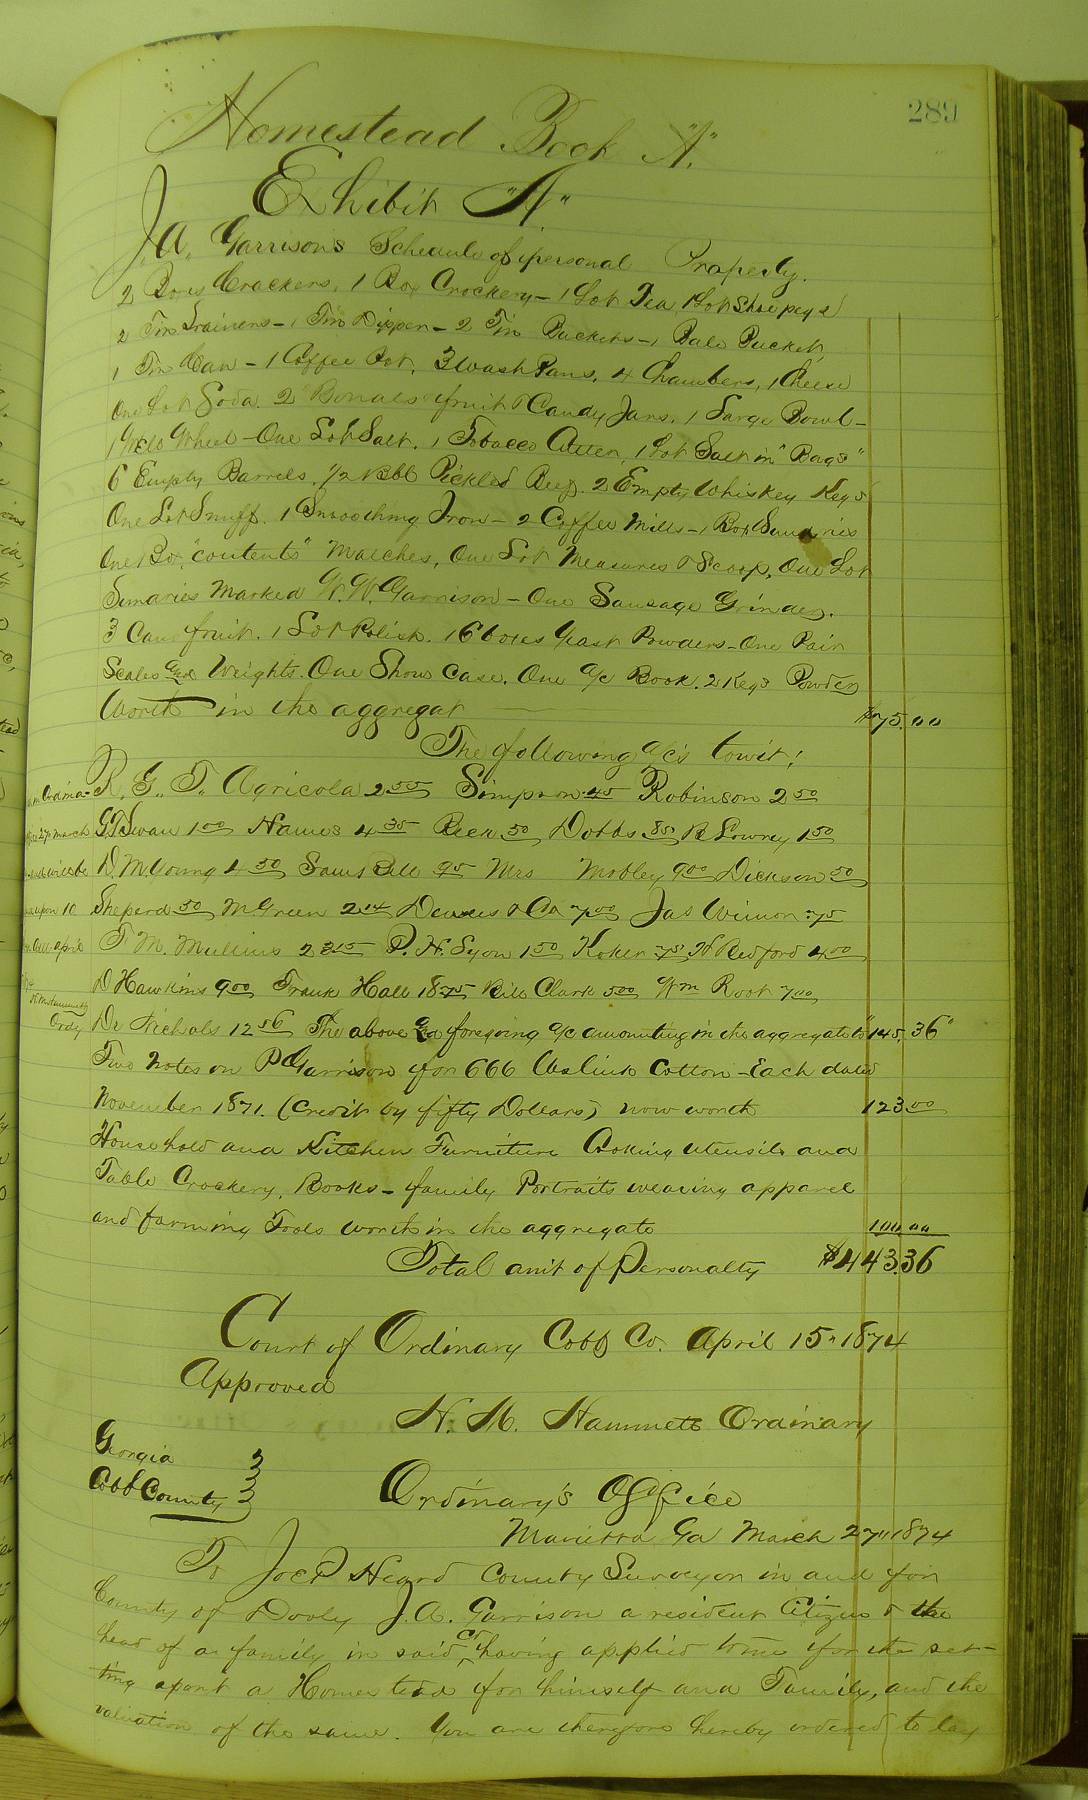 289
Homestead Book "A."
Exhibit "A"
J. A. Garrisons Schedule of personal Property.
2 Boxes Crackers, 1 Box Crockery - 1 Lot Tea 1 Lot Shoe pegs
2 Tin Strainers - 1 Tin Dipper - 2 Tin Buckets - 1 Bale Bucket,
1 Tin Can - 1 Coffee Pot, 3 Wash Pans, 4 Chambers, 1 Cheese
One Lot Soda. 2 fruit & Candy Jars. 1 Large Bowl -
1 Well Wheel - One Lot Salt, 1 Tobacco Cutter, 1 Lot Salt in "Bags"
6 Empty Barrels, 1/2 Bbl Pickled Beef. 2 Empty Whiskey Kegs
One Lot Snuff. 1 Smoothing Iron - 2 Coffee Mills - 1 Box Sundries
One Box, "contents" Matches, One Lot Measures & Scoop, One Lot
Sundries Marked W. W. Garrison - One Sausage Grinder.
3 Cans fruit. 1 Lot Polish. 16 boxes Yeast Powders - One Pair
Scales and Weights. One Show Case. One a/c Book. 2 Kegs Powder
Worth in the aggregat $75.00
The following a/c's towit;
R. G. T. Agricola 2 50 Simpson .45 Robinson 2 50
G. T. Swan 1 00 Hames 4 35 Reek 50 Dobbs 85 R Lowrey 1 50
D. M. Young 4 50 Bill 95 Mrs Mobley 9 00 Dickson 50
Sheperd 50 McGreen 2 14 & Co 7 00 Jas .75
T. M. Mullins 2 3 15 P. H. Lyon 1 50 Koker .75 H Redford 4 00
D Hawkins 9 00 Frank Hall 18 75 Bill Clark 5 00 Wm Root 7 00
Dr Nichols 12 56 The above and foregoing a/c amounting in the aggregate to "145.36"
Two Notes on P Garrison for 666 lbs lint Cotton - Each dated
November 1871. (Credit by fifty Dollars) now worth 123 00
Household and Kitchen Furniture Cooking utensils and
Table Crockery, Books - family Portraits wearing apparel
and farming Tools worth in the aggregate 100.00
Total amt of Personalty $443.36
Court of Ordinary Cobb Co. April 15" 1874
Approved
H. M. Hammett Ordinary
Georgia
Cobb County
Ordinary's Office
Marietta Ga March 27" 1874
To Joe P Heard County Surveyor in and for
County of Dooly J. A. Garrison a resident Citizen & the
head of a family in said Co. having applied to me for the set-
ting apart a Homestead for himself and Family, and the
valuation of the same. You are therefore hereby ordered to lay